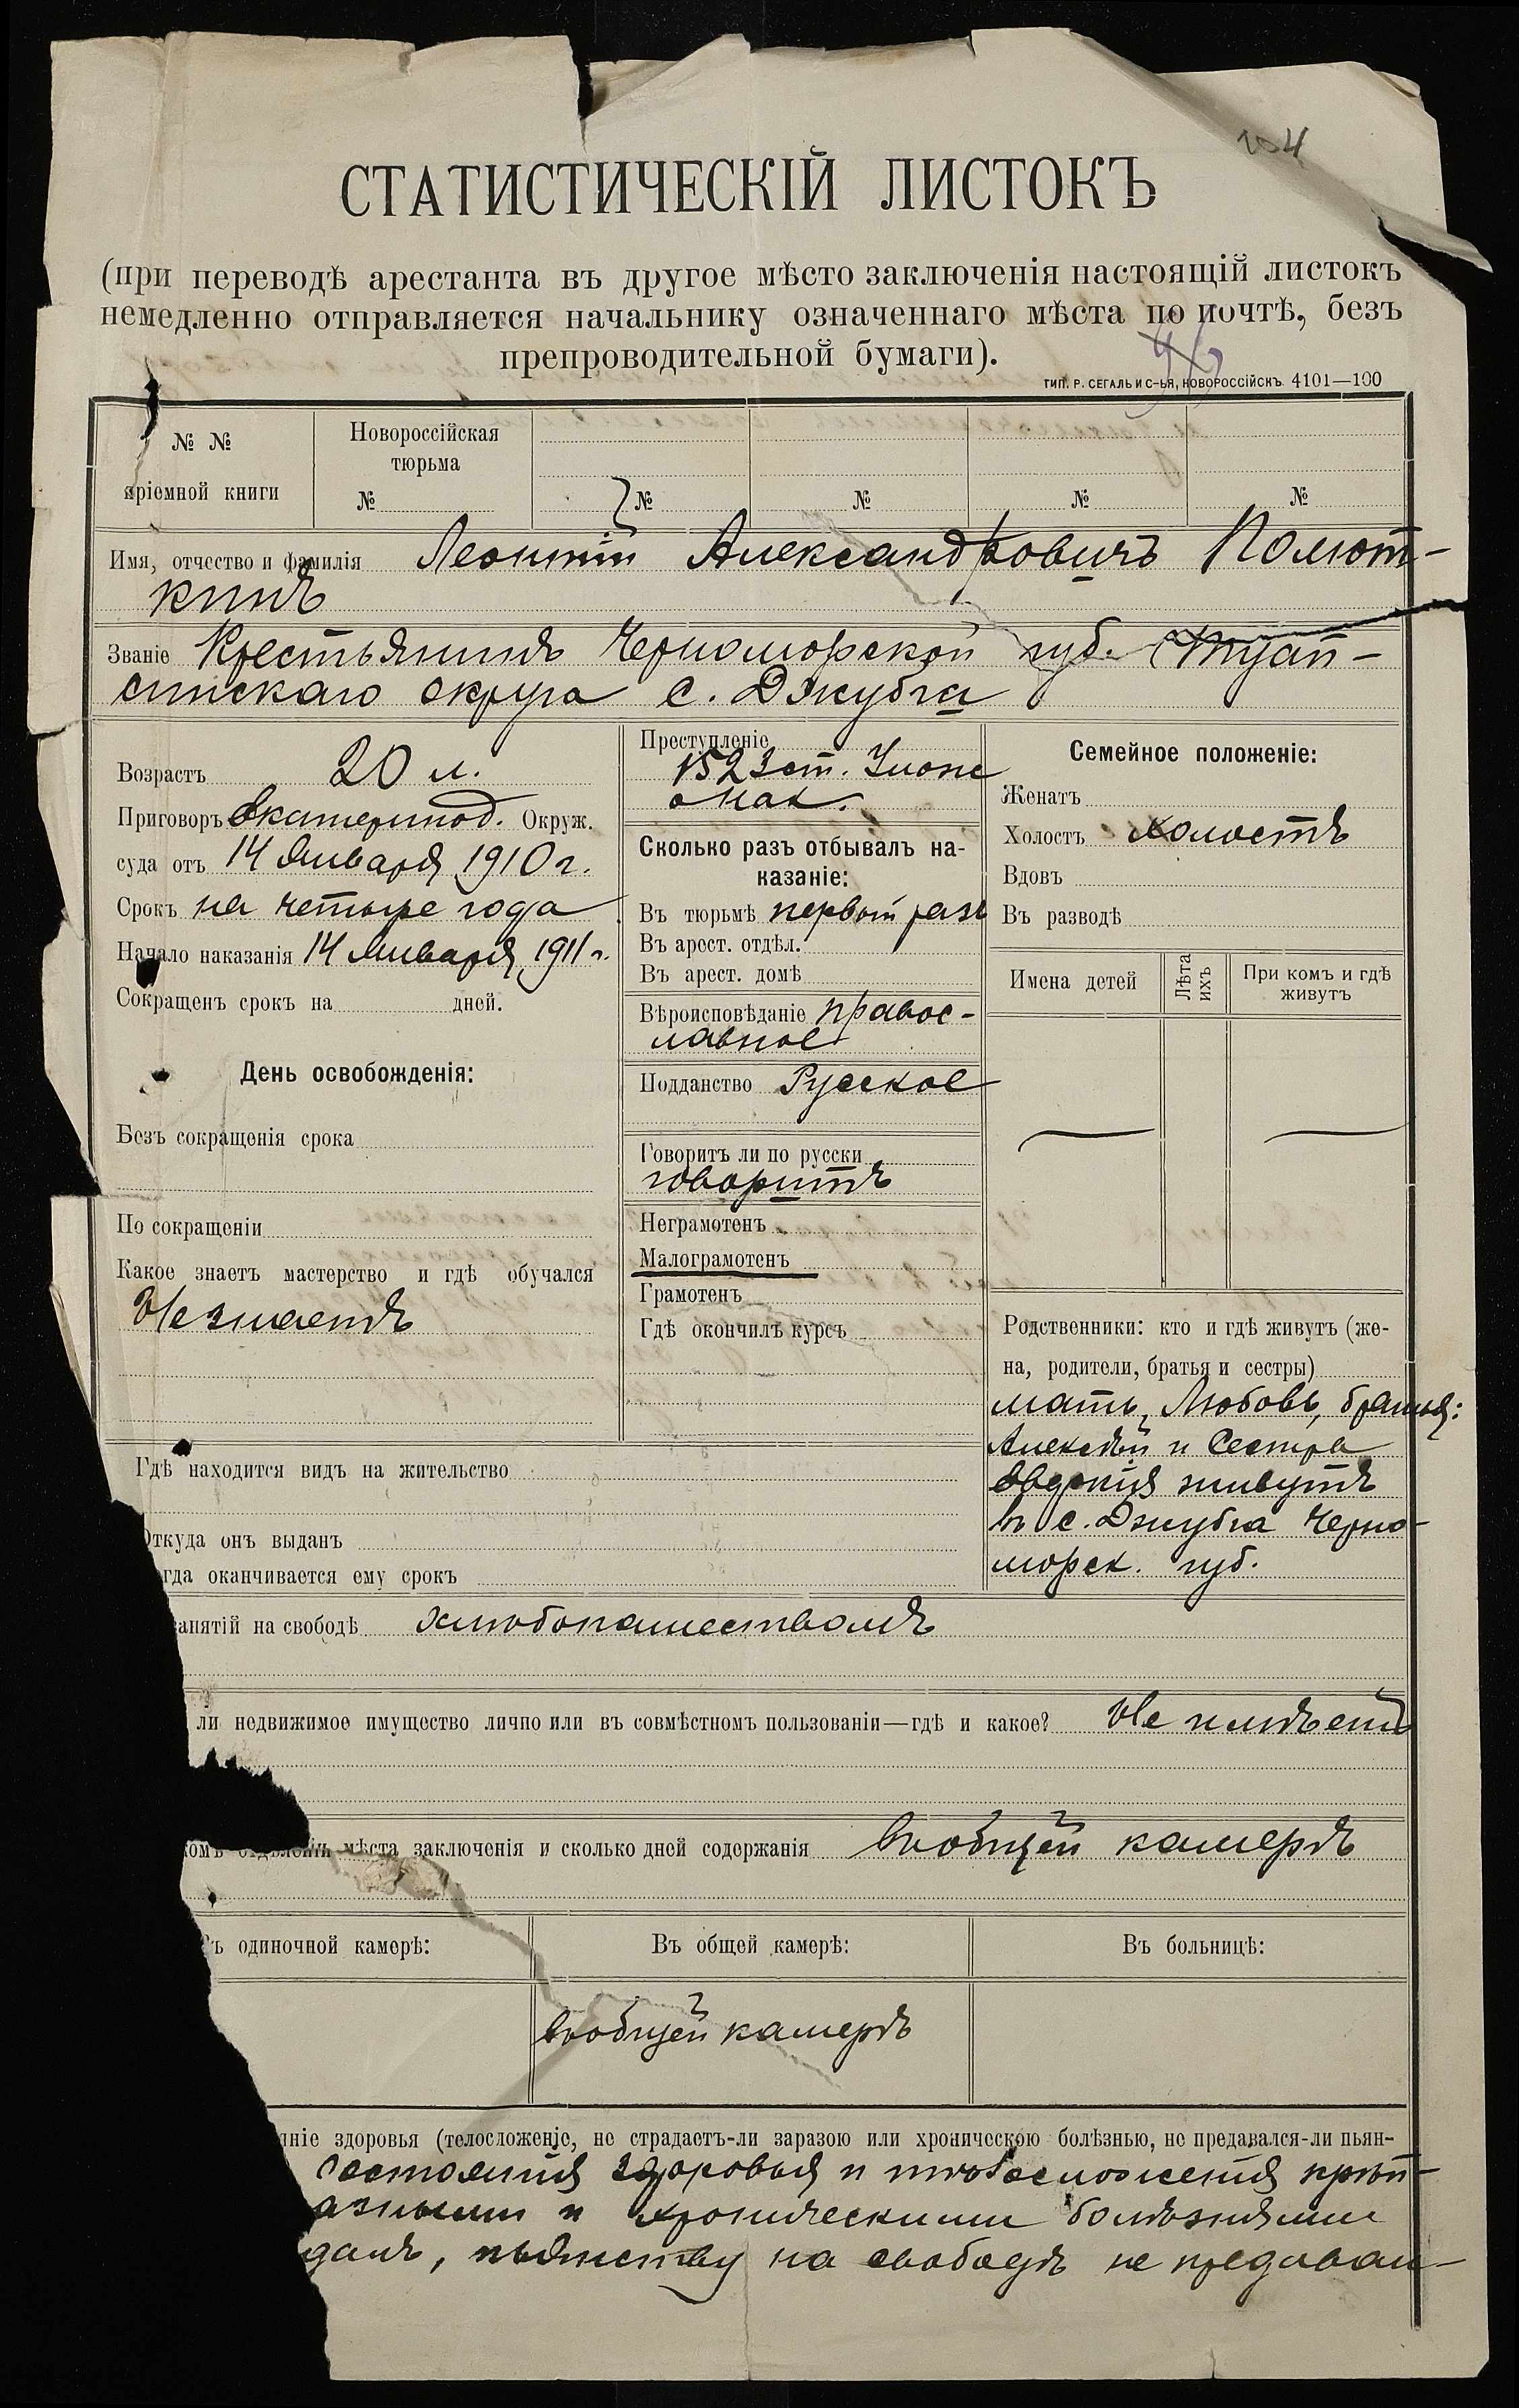 204
СТАТИСТИЧЕСКІЙ ЛИСТОКЪ
(при переводѣ арестанта въ другое мѣсто заключенія настоящій листокъ
немедленно отправляется начальнику означеннаго мѣста по почтѣ, безъ
препроводительной бумаги).
ТИП. Р. СЕГАЛЬ И С-ЬЯ, НОВОРОССІЙСКЪ. 4101—100
№ №
пріемной книги
Новороссійская
тюрьма
№
№
№
№
№
Имя, отчество и фамилія Леонтій Александровичъ Полют-
кинъ
Званіе Крестьянинъ Черноморской губ. Туап-
синскаго округа с. Джубга
Возрастъ 20 л.
Приговоръ Екатеринод. Окруж.
суда отъ 14 Января 1910 г.
Срокъ на четыре года
Начало наказанія 14 Января 1911 г.
Сокращенъ срокъ на дней.
День освобожденія:
Безъ сокращенія срока
По сокращеніи
Какое знаетъ мастерство и гдѣ обучался
Незнаетъ
Преступленіе
1523 ст. Улож
о нак.
Сколько разъ отбывалъ на-
казаніе:
Въ тюрьмѣ первый разъ
Въ арест. отдѣл.
Въ арест. домѣ
Вѣроисповѣданіе правос-
лавное
Подданство Русское
Говоритъ ли по русски
говоритъ
Неграмотенъ
Малограмотенъ
Грамотенъ
Гдѣ окончилъ курсъ
Семейное положеніе:
Женатъ
Холостъ холостъ
Вдовъ
Въ разводѣ
Имена детей
Лѣта ихъ
При комъ и гдѣ
живутъ
Родственники: кто и гдѣ живутъ (же-
на, родители, братья и сестры)
мать, Любовь, братья:
Алексѣй и Сестра
Евдокія живутъ
в с. Джубга Черно-
морск. губ.
Гдѣ находится видъ на жительство
Откуда онъ выданъ
огда оканчивается ему срокъ
занятій на свободѣ хлѣбопашествомъ
ли недвижимое имущество лично или въ совмѣстномъ пользованіи—гдѣ и какое? Не имѣетъ
комъ отдѣленіи мѣста заключенія и сколько дней содержанія вобщей камерѣ
Въ одиночной камерѣ:
Въ общей камерѣ:
Въ больницѣ:
вобщей камерѣ
яніе здоровья (телосложеніе, не страдаетъ-ли заразою или хроническою болѣзнью, не предавался-ли пьян-
состоянія здоровья и тѣлосложенія крѣп-
азными и хроническими болѣзнями
далъ, пьянству на свободѣ не предавал-